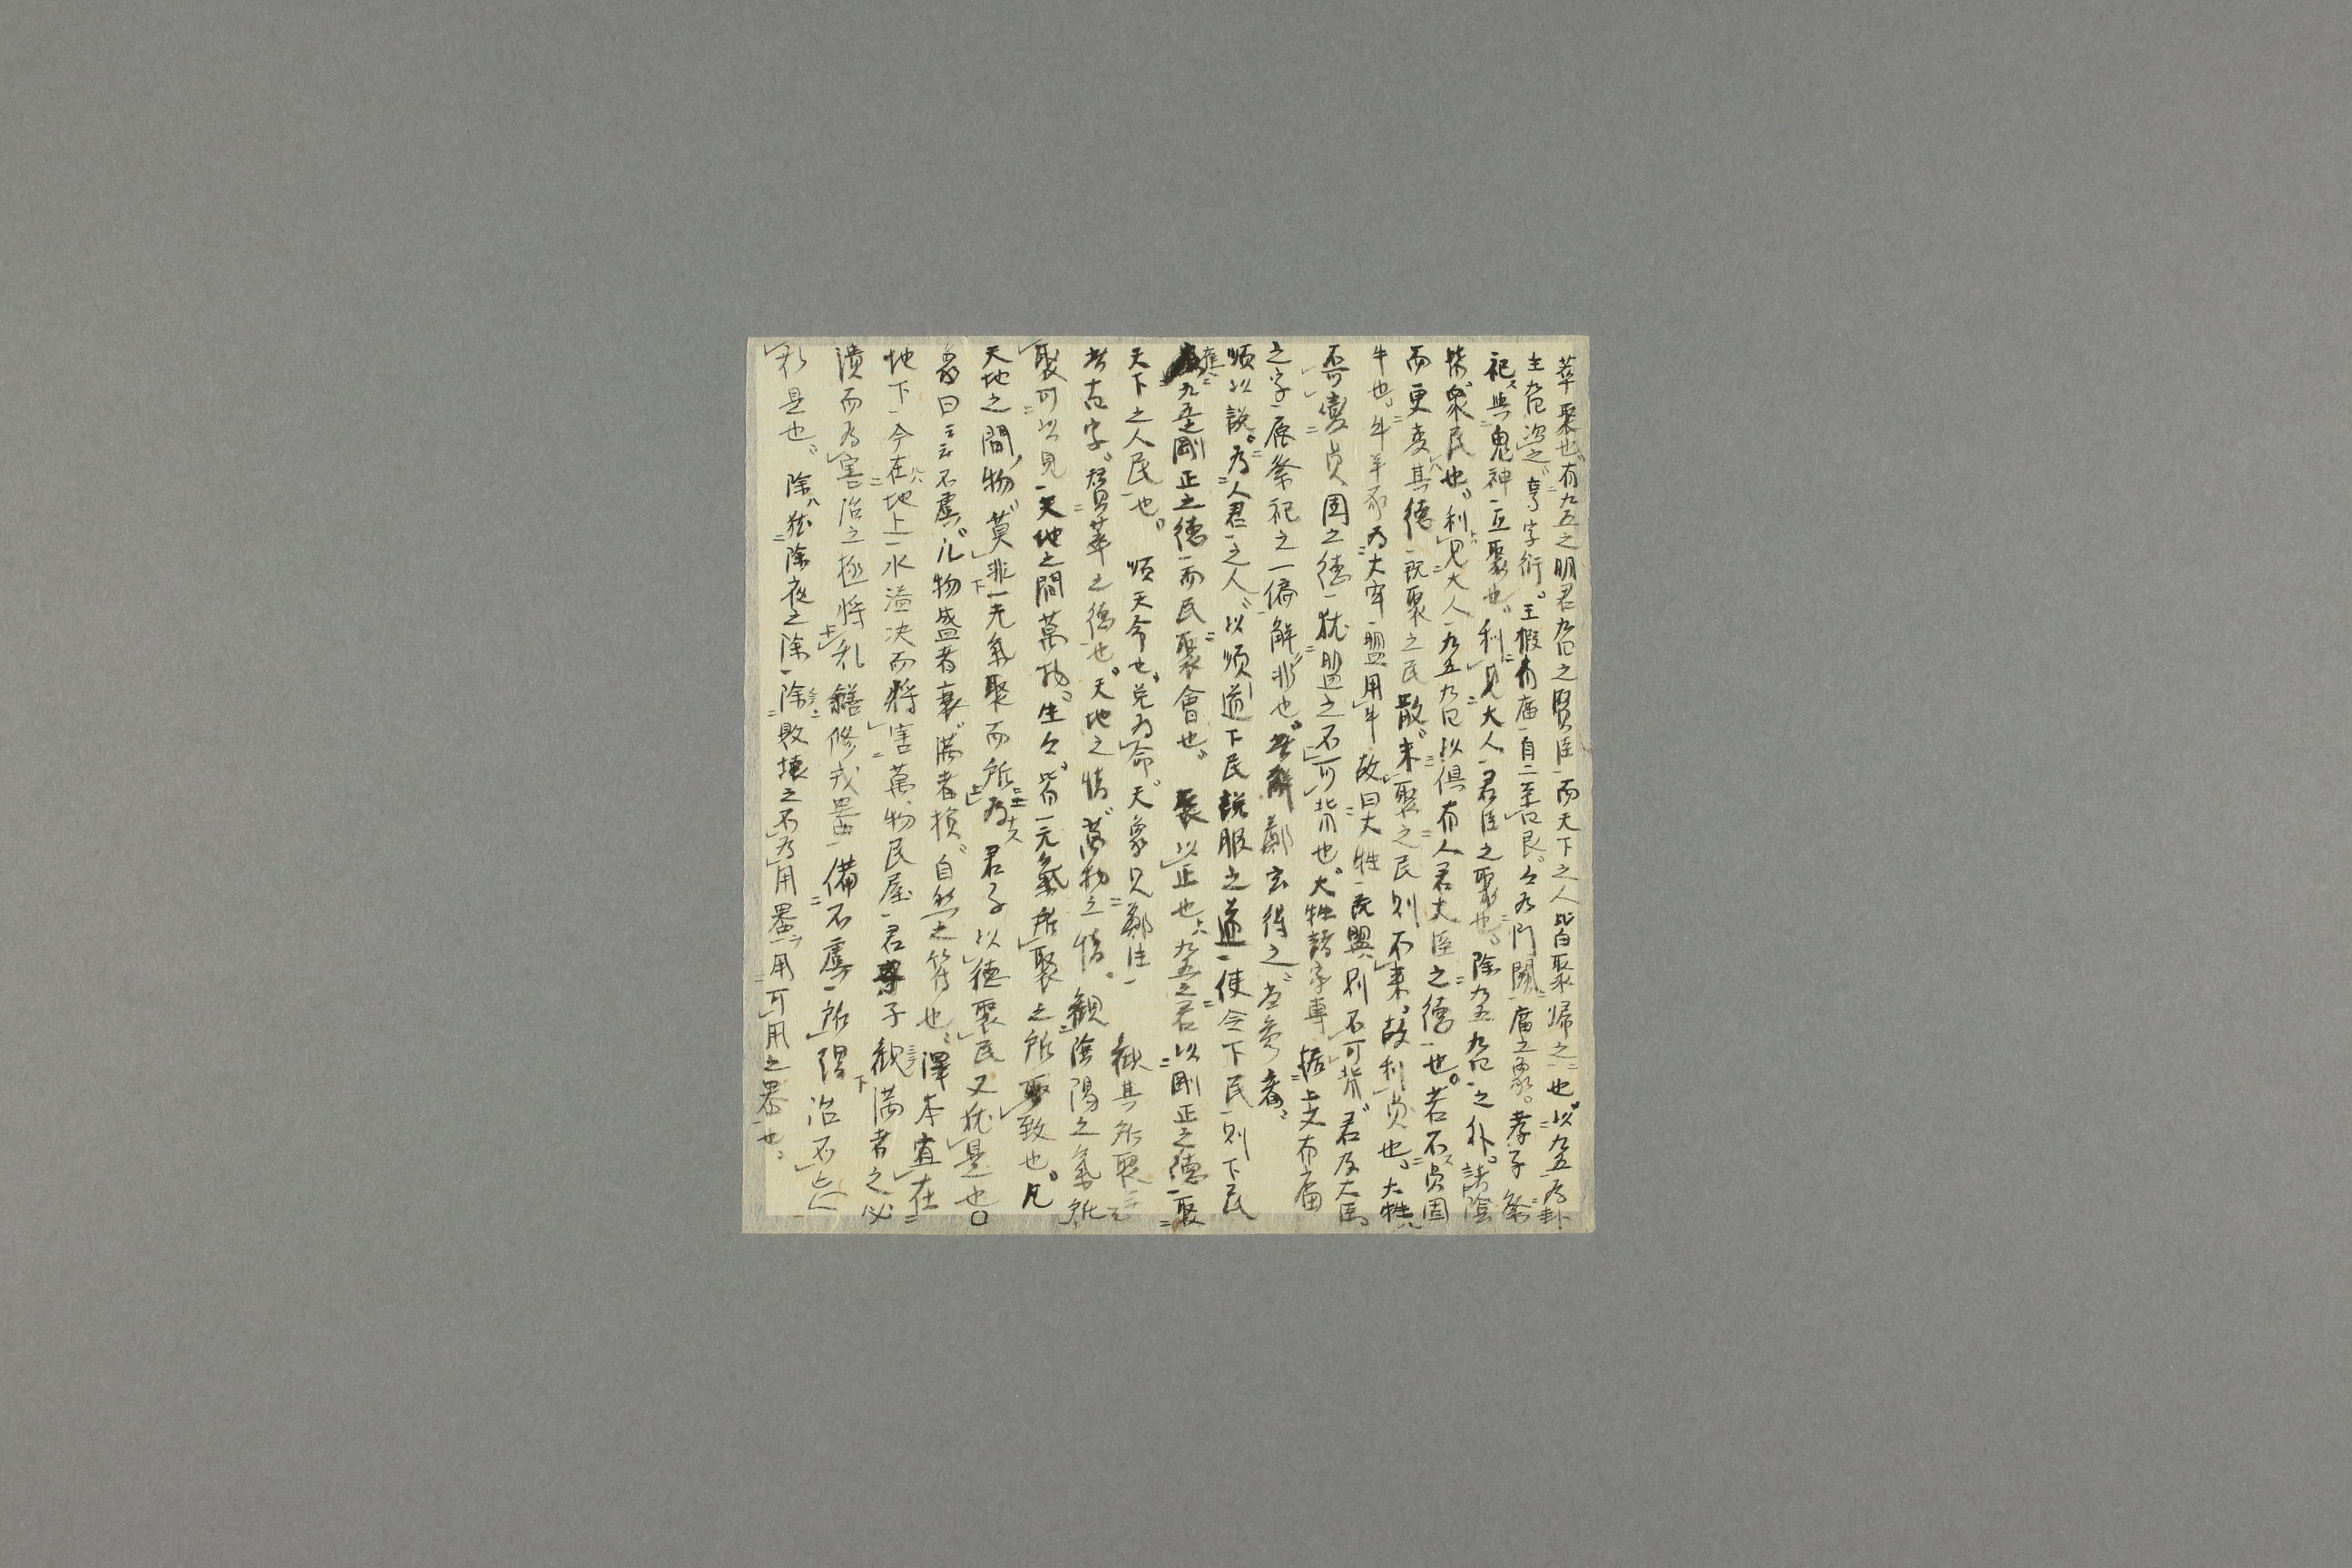 萃聚也有九五之明君九四之賢臣而天下之人皆自聚歸之也以九五為卦
主九四逆之亨字衍王假有庙自二至四艮々為門闕庙之象孝子祭
祀與鬼神互聚也利見大人君臣之聚也除九五九四之外諸陰
皆衆民也利見大人九五九四以俱有人君大臣之德也若不貞固
而更变其德既聚之民散未聚之民則不来故利貞也大牲
牛也牛羊豕為大牢盟用牛故曰大牲既盟則不可背君及大臣
不可変貞固之德猶盟之不可背也大牲諸家專据上文有庙
之字展祭祀之一偏解非也鄭玄得之宜参看
順以説為人君之人以順道下民説服之道使令下民則下民
萃九五剛正之德而民聚會也聚以正也九五之君以剛正之德聚
天下之人民也順天命也兌為命天象見鄭注觀其所聚云云
者古字賛萃之德也天地之情萬物之情觀陰陽之氣所
聚可以見天地之間萬物生々皆一元氣所聚之所致也凡
天地之間物莫非一元氣聚而所為君子以德聚民又猶是也○
象曰云云不虞凡物盛者衰満者損自然之符也澤本宜在
地下今在地上水溢决而将害萬物民屋君子觀満者之必
潰而為害治之極将乱繕修戎器備不虞所謂治不忘
乱是也除猶除夜之除除敗壞之不為用器用可用之器也